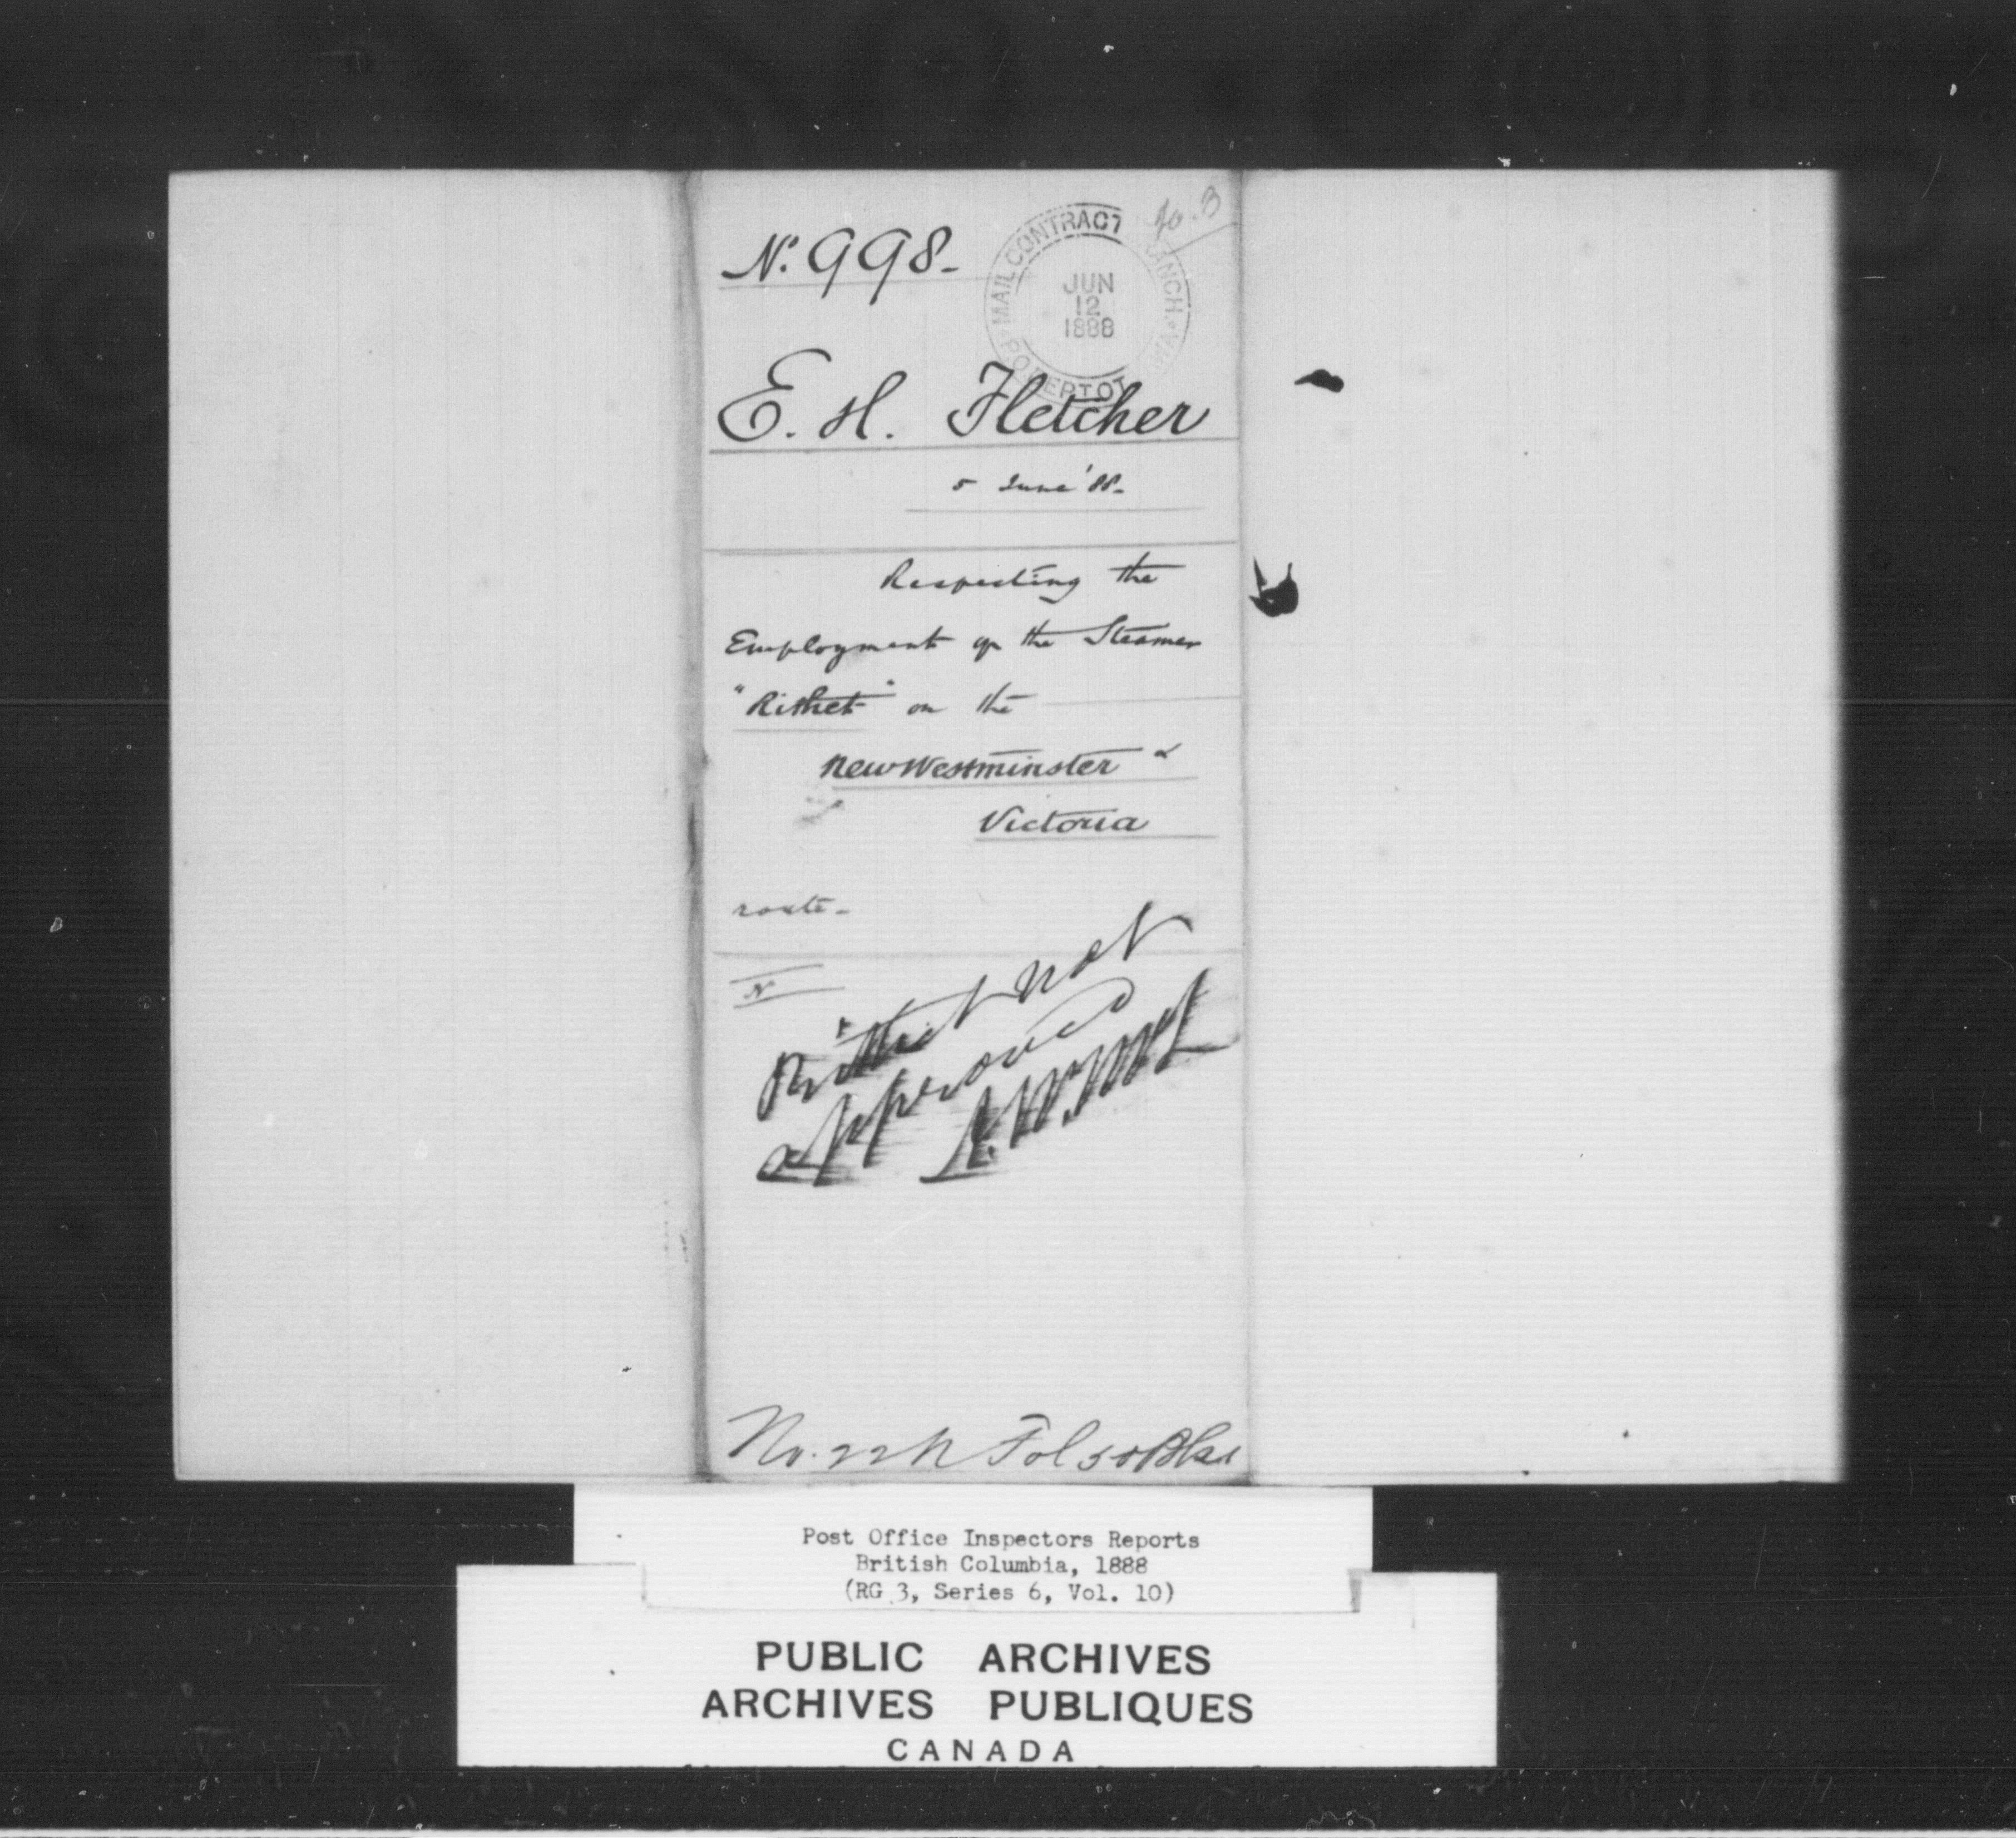 No. 998-
No. 3
MAIL CONTRACT BRANCH
JUN
12
1888
E. H. Fletcher
5 June '88-
Respecting the
Employment of the Steamer
"Rithet" on the
New Westminster &
Victoria
route-
N
Rithet not
approved
Fol 50
Post Office Inspectors Reports
British Columbia, 1888
(RG 3, Series 6, Vol. 10)
PUBLIC ARCHIVES
ARCHIVES PUBLIQUES
CANADA